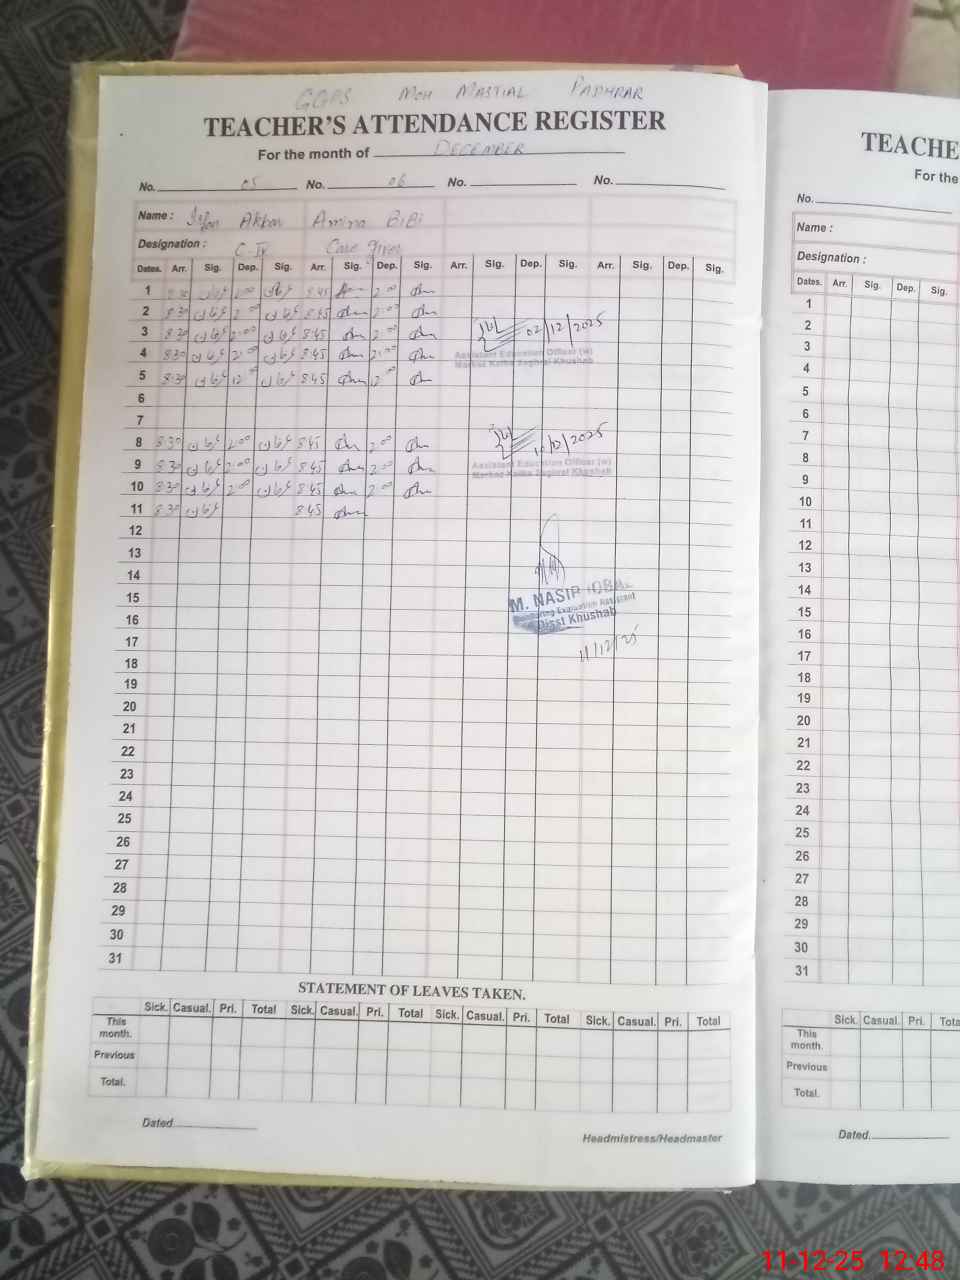 GGPS MOH MASTIAL PADHRAR
TEACHER'S ATTENDANCE REGISTER
For the month of DECEMBER
No. 05 No. 06 No. No.
Name : Akbar Amina BiBi
Designation : C-IV Care giver
Dates. Arr. Sig. Dep. Sig. Arr. Sig. Dep. Sig. Arr. Sig. Dep. Sig. Arr. Sig. Dep. Sig.
1 8:30 2:00 8:45 2:00
2 8:30 2:00 8:45 2:00
3 8:30 2:00 8:45 2:00 02/12/2025
4 8:30 2:00 8:45 2:00 Assistant Education Officer (w)
5 8:30 12:00 8:45 12:00
6
7
8 8:30 2:00 8:45 2:00 10/12/2025
9 8:30 2:00 8:45 2:00 Assistant Education Officer (w)
10 8:30 2:00 8:45 2:00
11 8:30 8:45
12
13
14
15 M. NASIR IQBAL
16 Monitoring Evaluation Assistant
17 Distt Khushab
18 11/12/25
19
20
21
22
23
24
25
26
27
28
29
30
31
STATEMENT OF LEAVES TAKEN.
Sick. Casual. Pri. Total Sick. Casual. Pri. Total Sick. Casual. Pri. Total Sick. Casual. Pri. Total
This month.
Previous
Total.
Dated
Headmistress/Headmaster
TEACHE
For the
No.
Name :
Designation :
Dates. Arr. Sig. Dep. Sig.
1
2
3
4
5
6
7
8
9
10
11
12
13
14
15
16
17
18
19
20
21
22
23
24
25
26
27
28
29
30
31
Sick. Casual. Pri. Tota
This month.
Previous
Total.
Dated.
11-12-25 12:48